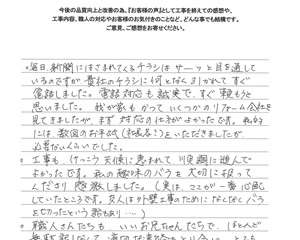 今後の品質向上と改善の為、『お客様の声』として工事を終えての感想や、
工事内容、職人の対応やお客様のお気付きのことなど、どんな事でも結構です。
ご意見、ご感想をお寄せください。
。毎日、新聞にはさまれてくるチラシは サーッと目を通して
いるのですが 貴社のチラシに何となく引かれて すぐ
電話しました。電話対応も誠実で、すぐ 頼もうと
思いました。我が家も かって いくつかのリフォーム会社を
見てきましたが、まず 対応の仕方がよかったです。私から
には、数回のお手紙 をいただきましたが
必要ないくらいでした。
。工事も、けっこう 天候に 恵まれて 順調に進んで
よかったです。私の趣味のバラを大切に扱って
くださり 感激しました。(実は、ここが一番心配し
ていたところです。友人は外壁工事のためになくなくバラ
を切ったという話もあり…)
。職人さんたちも いいお兄ちゃんたちで、ほとんど